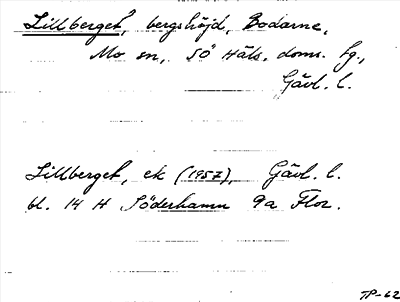 Lillberget, bergshöjd, Bodarne,
Mo sn, SÖ Häls. doms. fg.,
Gävl. l.
Lillberget, ek (1957), Gävl. l.
bl. 14 H Söderhamn 9a Flor.
TP-62